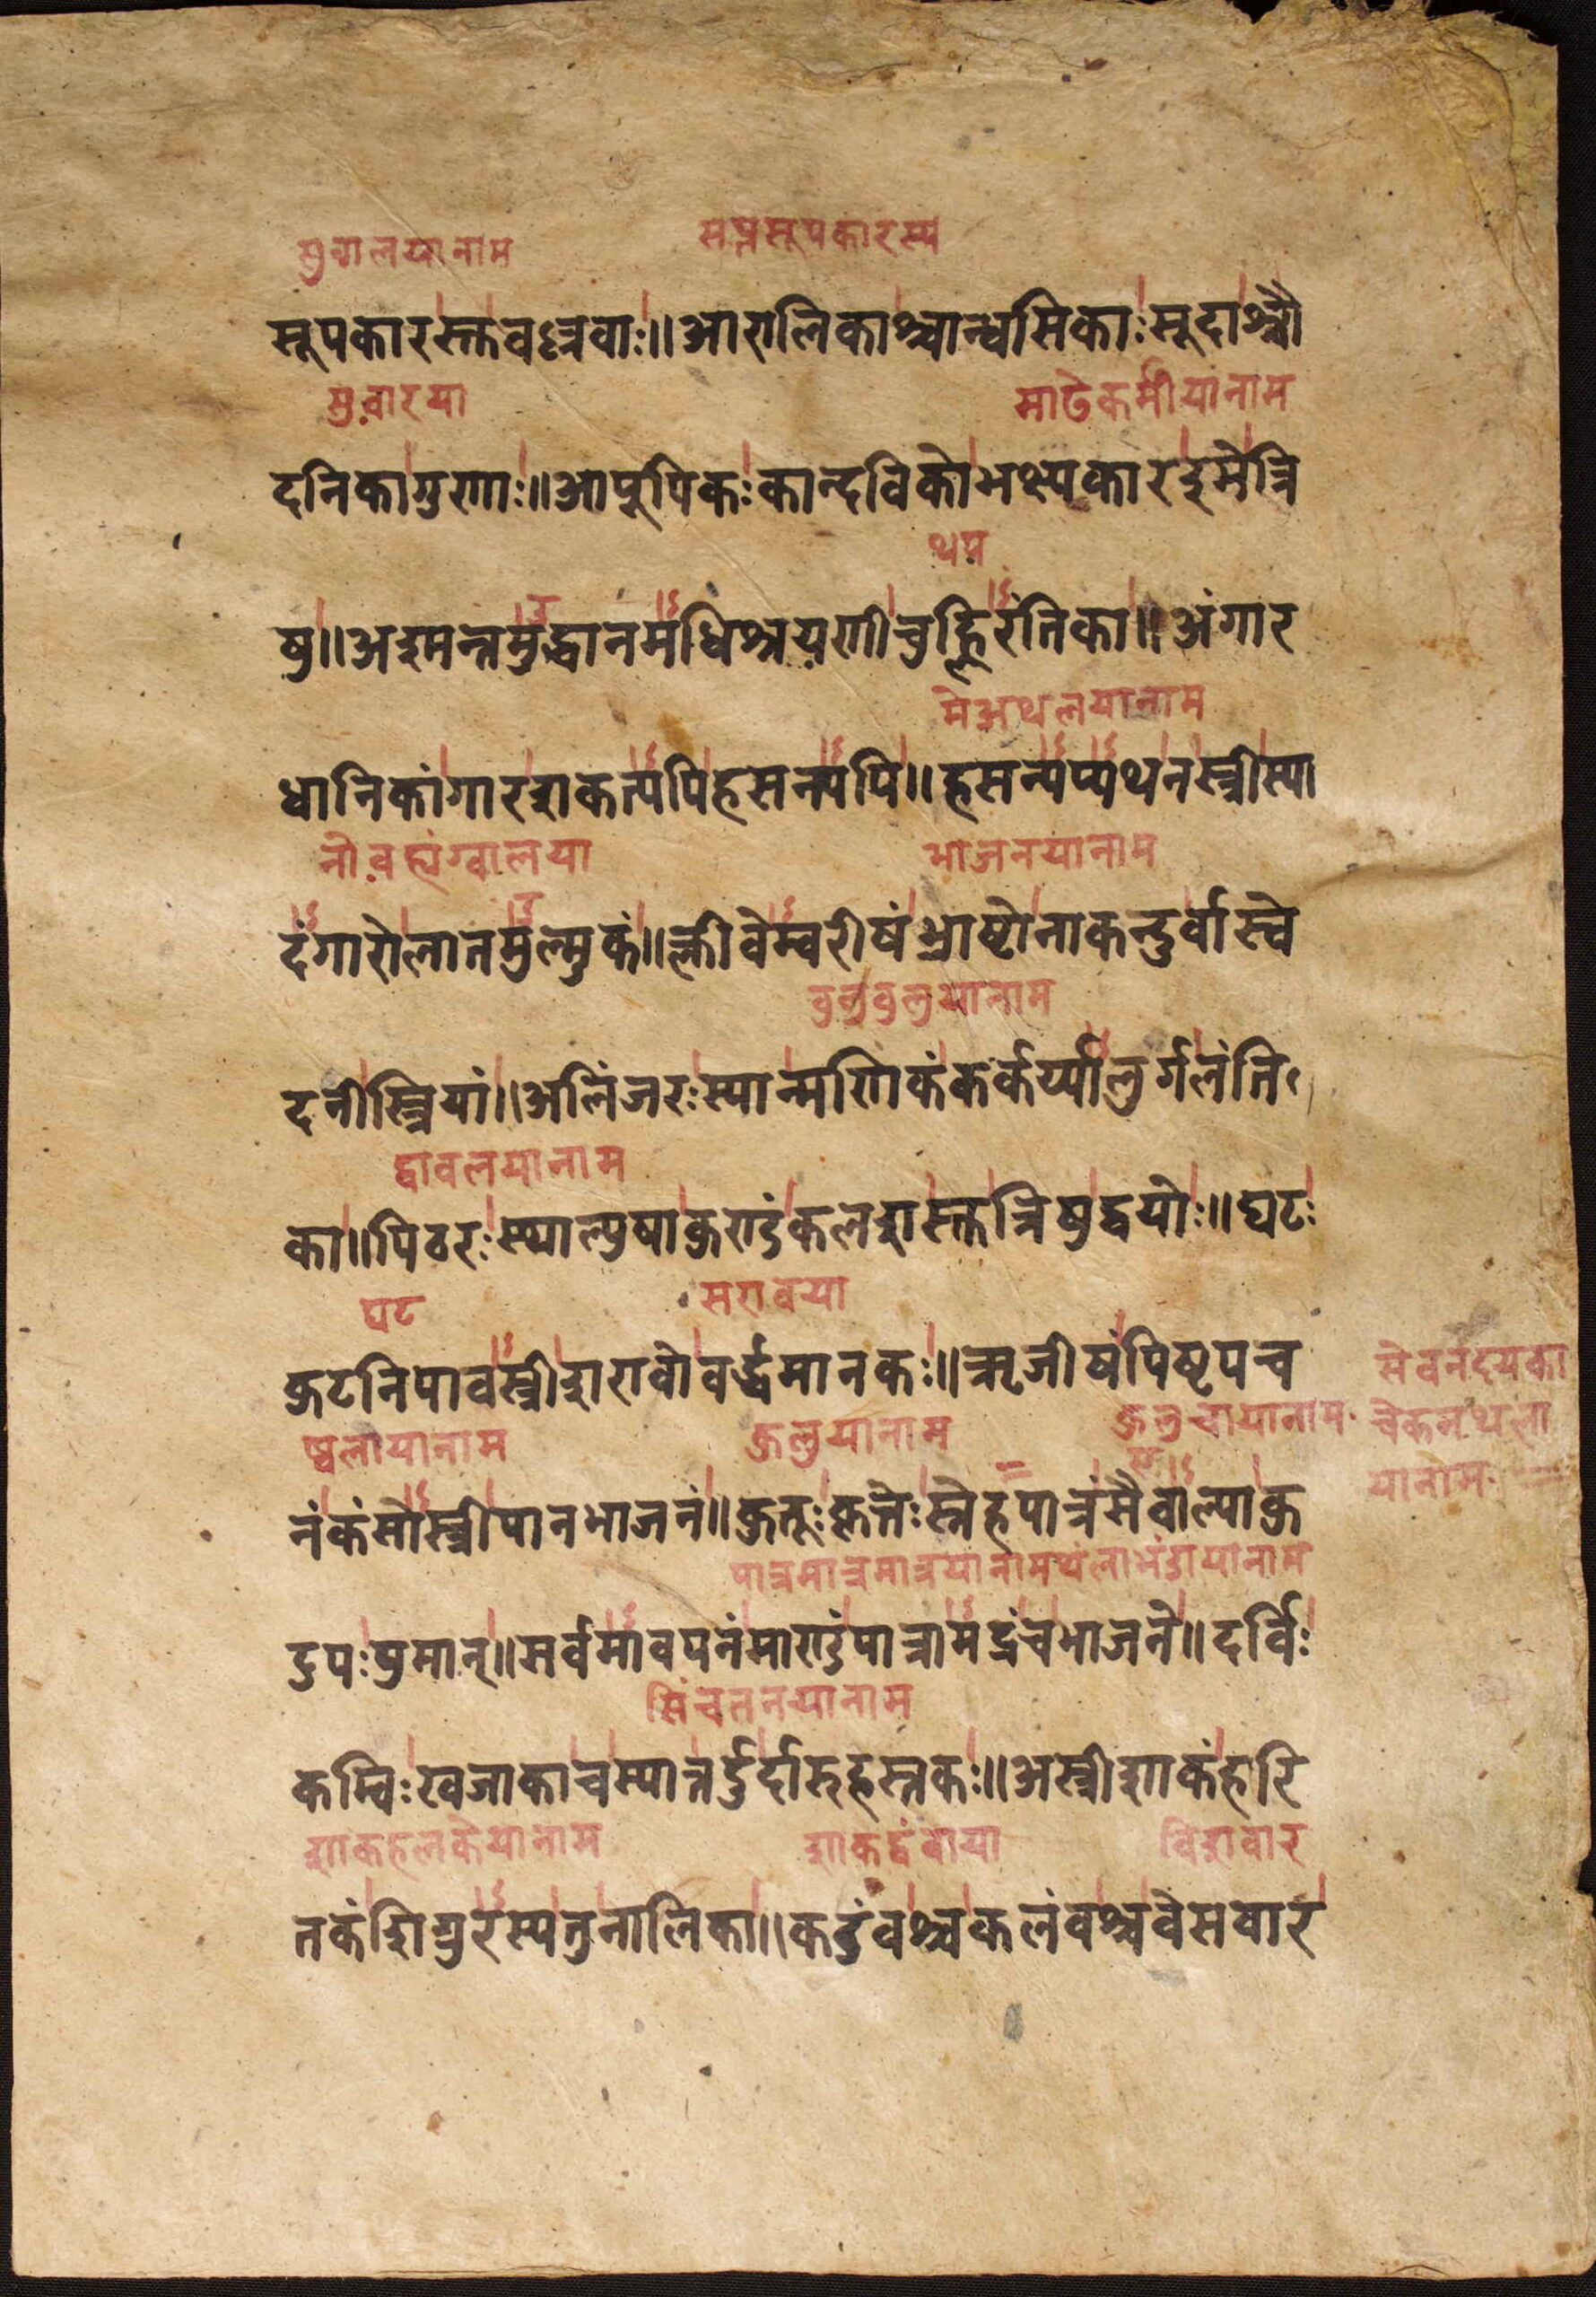 सुवालयानाम सप्तसूपकारस्य
सूपकारस्तुवल्लवाः॥आरालिकाश्चान्धसिकाःसूदाश्चौ
सुवारया माढेकर्मीयानाम
दनिकागुणाः॥आपूपिकःकान्दविकोभक्ष्यकारइमेत्रि
षु॥अश्मन्तमुद्धानमधिश्रयणीचुल्लिरंतिका॥अंगार
मेअथलयानाम
धानिकांगारशकत्यपिहसन्यपि॥हसन्यप्यथनस्त्रीस्या
भाजनयानाम
दंगारोलातमुल्मुकं॥क्लीवेम्वरीषंभ्राष्टोनाकन्दुर्वास्वे
दनीस्त्रियां॥अलिंजरःस्यान्मणिकंकर्कर्य्यालुर्गलंति
द्वावलयानाम
का॥पिठरःस्थाल्युषाकुण्डंकलशस्तुत्रिषुद्वयोः॥घटः
घट सरावया
कुटनिपावस्त्रीशरावोवर्द्धमानकः॥ऋजीषंपिष्टपच
ष्वलायानाम कुलुयानाम कुलुचायानाम
नंकंसोस्त्रीपानभाजनं॥कुतूःकृत्तेःस्नेहपात्रंसैवाल्पाकु
यानाम
डुपःपुमान्॥सर्वमावपनंभाण्डंपात्रामत्रंचभाजने॥दर्विः
सिंचतनयानाम
कम्विःखजाकाचस्यात्तर्दुर्दारुहस्तकः॥अस्त्रीशाकंहरि
शाकहलकेयानाम शाकद्वंवाया
तकंशिग्रुरस्यतुनालिका॥कडंवश्चकलंवश्चवेसवार